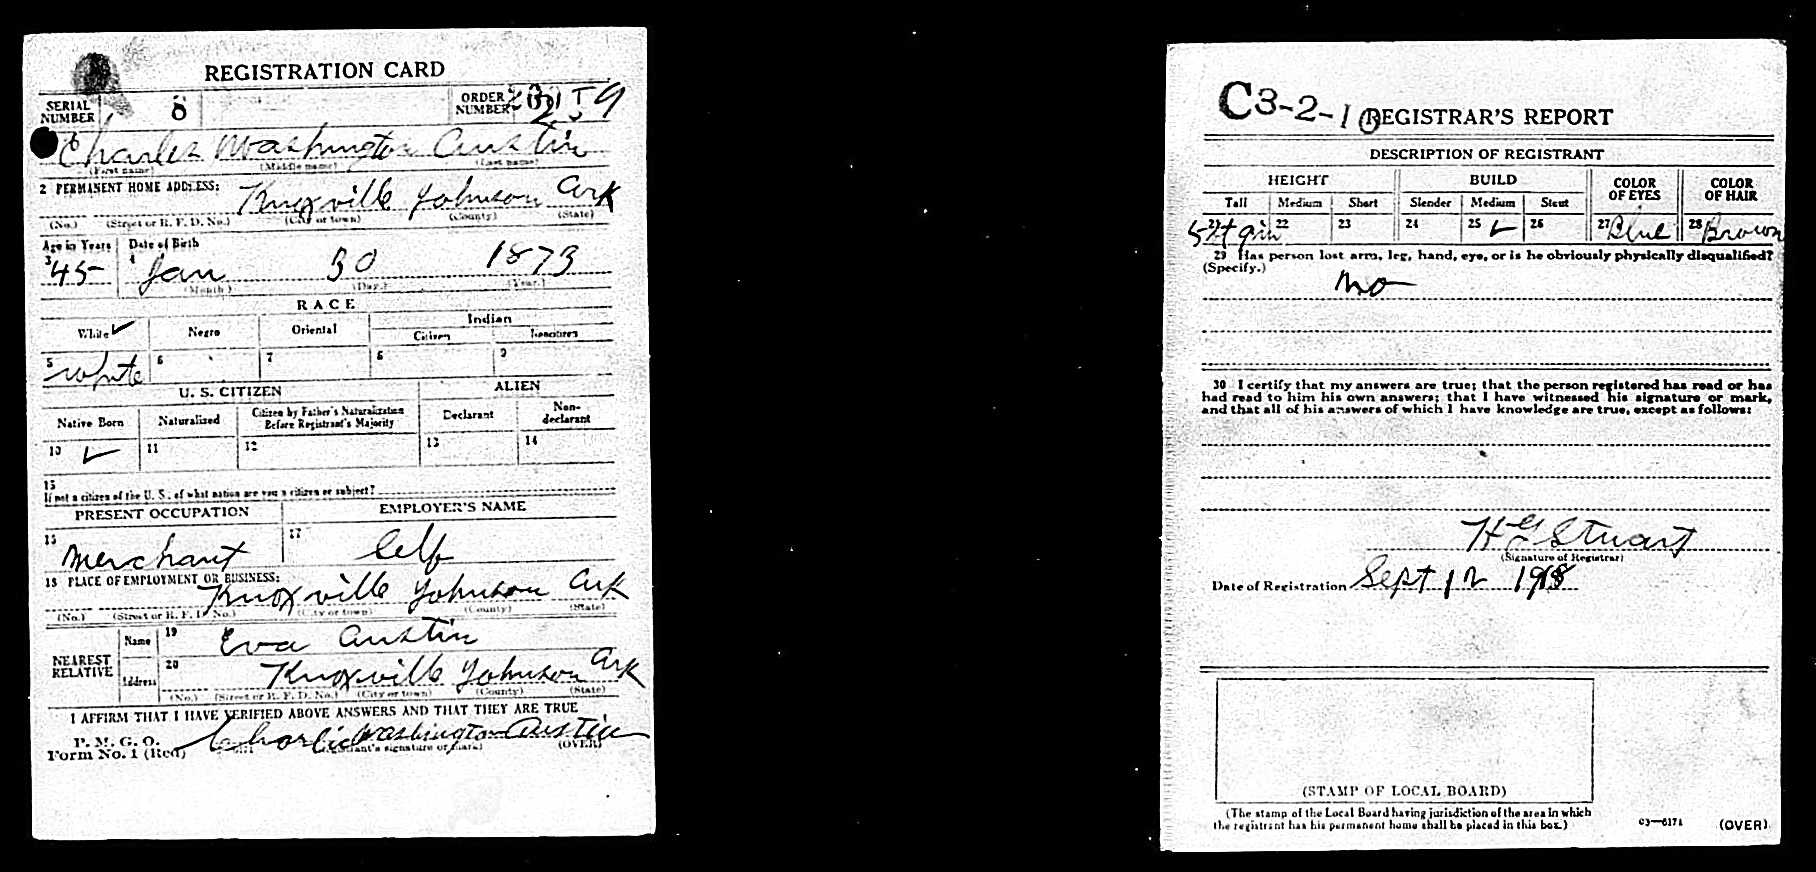 REGISTRATION CARD
SERIAL NUMBER 8 ORDER NUMBER
Charles Washington Austin
(First name) (Middle name) (Last name)
2 PERMANENT HOME ADDRESS: Knoxville Johnson Ark
(No.) (Street or R. F. D. No.) (City or town) (County) (State)
Age in Years Date of Birth
3 45 4 Jan 30 1873
(Month.) (Day.) (Year.)
RACE
White ✓ Negro Oriental Indian
Citizen Noncitizen
5 white 6 7 8 9
U. S. CITIZEN ALIEN
Native Born Naturalized Citizen by Father's Naturalization Before Registrant's Majority Declarant Non-declarant
10 ✓ 11 12 13 14
15
If not a citizen of the U. S., of what nation are you a citizen or subject?
PRESENT OCCUPATION EMPLOYER'S NAME
16 Merchant 17 Self
18 PLACE OF EMPLOYMENT OR BUSINESS:
Knoxville Johnson Ark
(No.) (Street or R. F. D. No.) (City or town) (County) (State)
NEAREST RELATIVE Name 19 Eva Austin
Address 20 Knoxville Johnson Ark
(No.) (Street or R. F. D. No.) (City or town) (County) (State)
I AFFIRM THAT I HAVE VERIFIED ABOVE ANSWERS AND THAT THEY ARE TRUE
P. M. G. O.
Form No. 1 (Red) Charlie Washington Austin
(Registrant's signature or mark) (OVER)
C3-2-10 REGISTRAR'S REPORT
DESCRIPTION OF REGISTRANT
HEIGHT BUILD COLOR OF EYES COLOR OF HAIR
Tall Medium Short Slender Medium Stout
21 5 ft 9 in 22 23 24 25 ✓ 26 27 Blue 28 Brown
29 Has person lost arm, leg, hand, eye, or is he obviously physically disqualified?
(Specify.)
no
30 I certify that my answers are true; that the person registered has read or has
had read to him his own answers; that I have witnessed his signature or mark,
and that all of his answers of which I have knowledge are true, except as follows:
H G Stuart
(Signature of Registrar)
Date of Registration Sept 12 1918
(STAMP OF LOCAL BOARD)
(The stamp of the Local Board having jurisdiction of the area in which
the registrant has his permanent home shall be placed in this box.)
03—6171 (OVER)